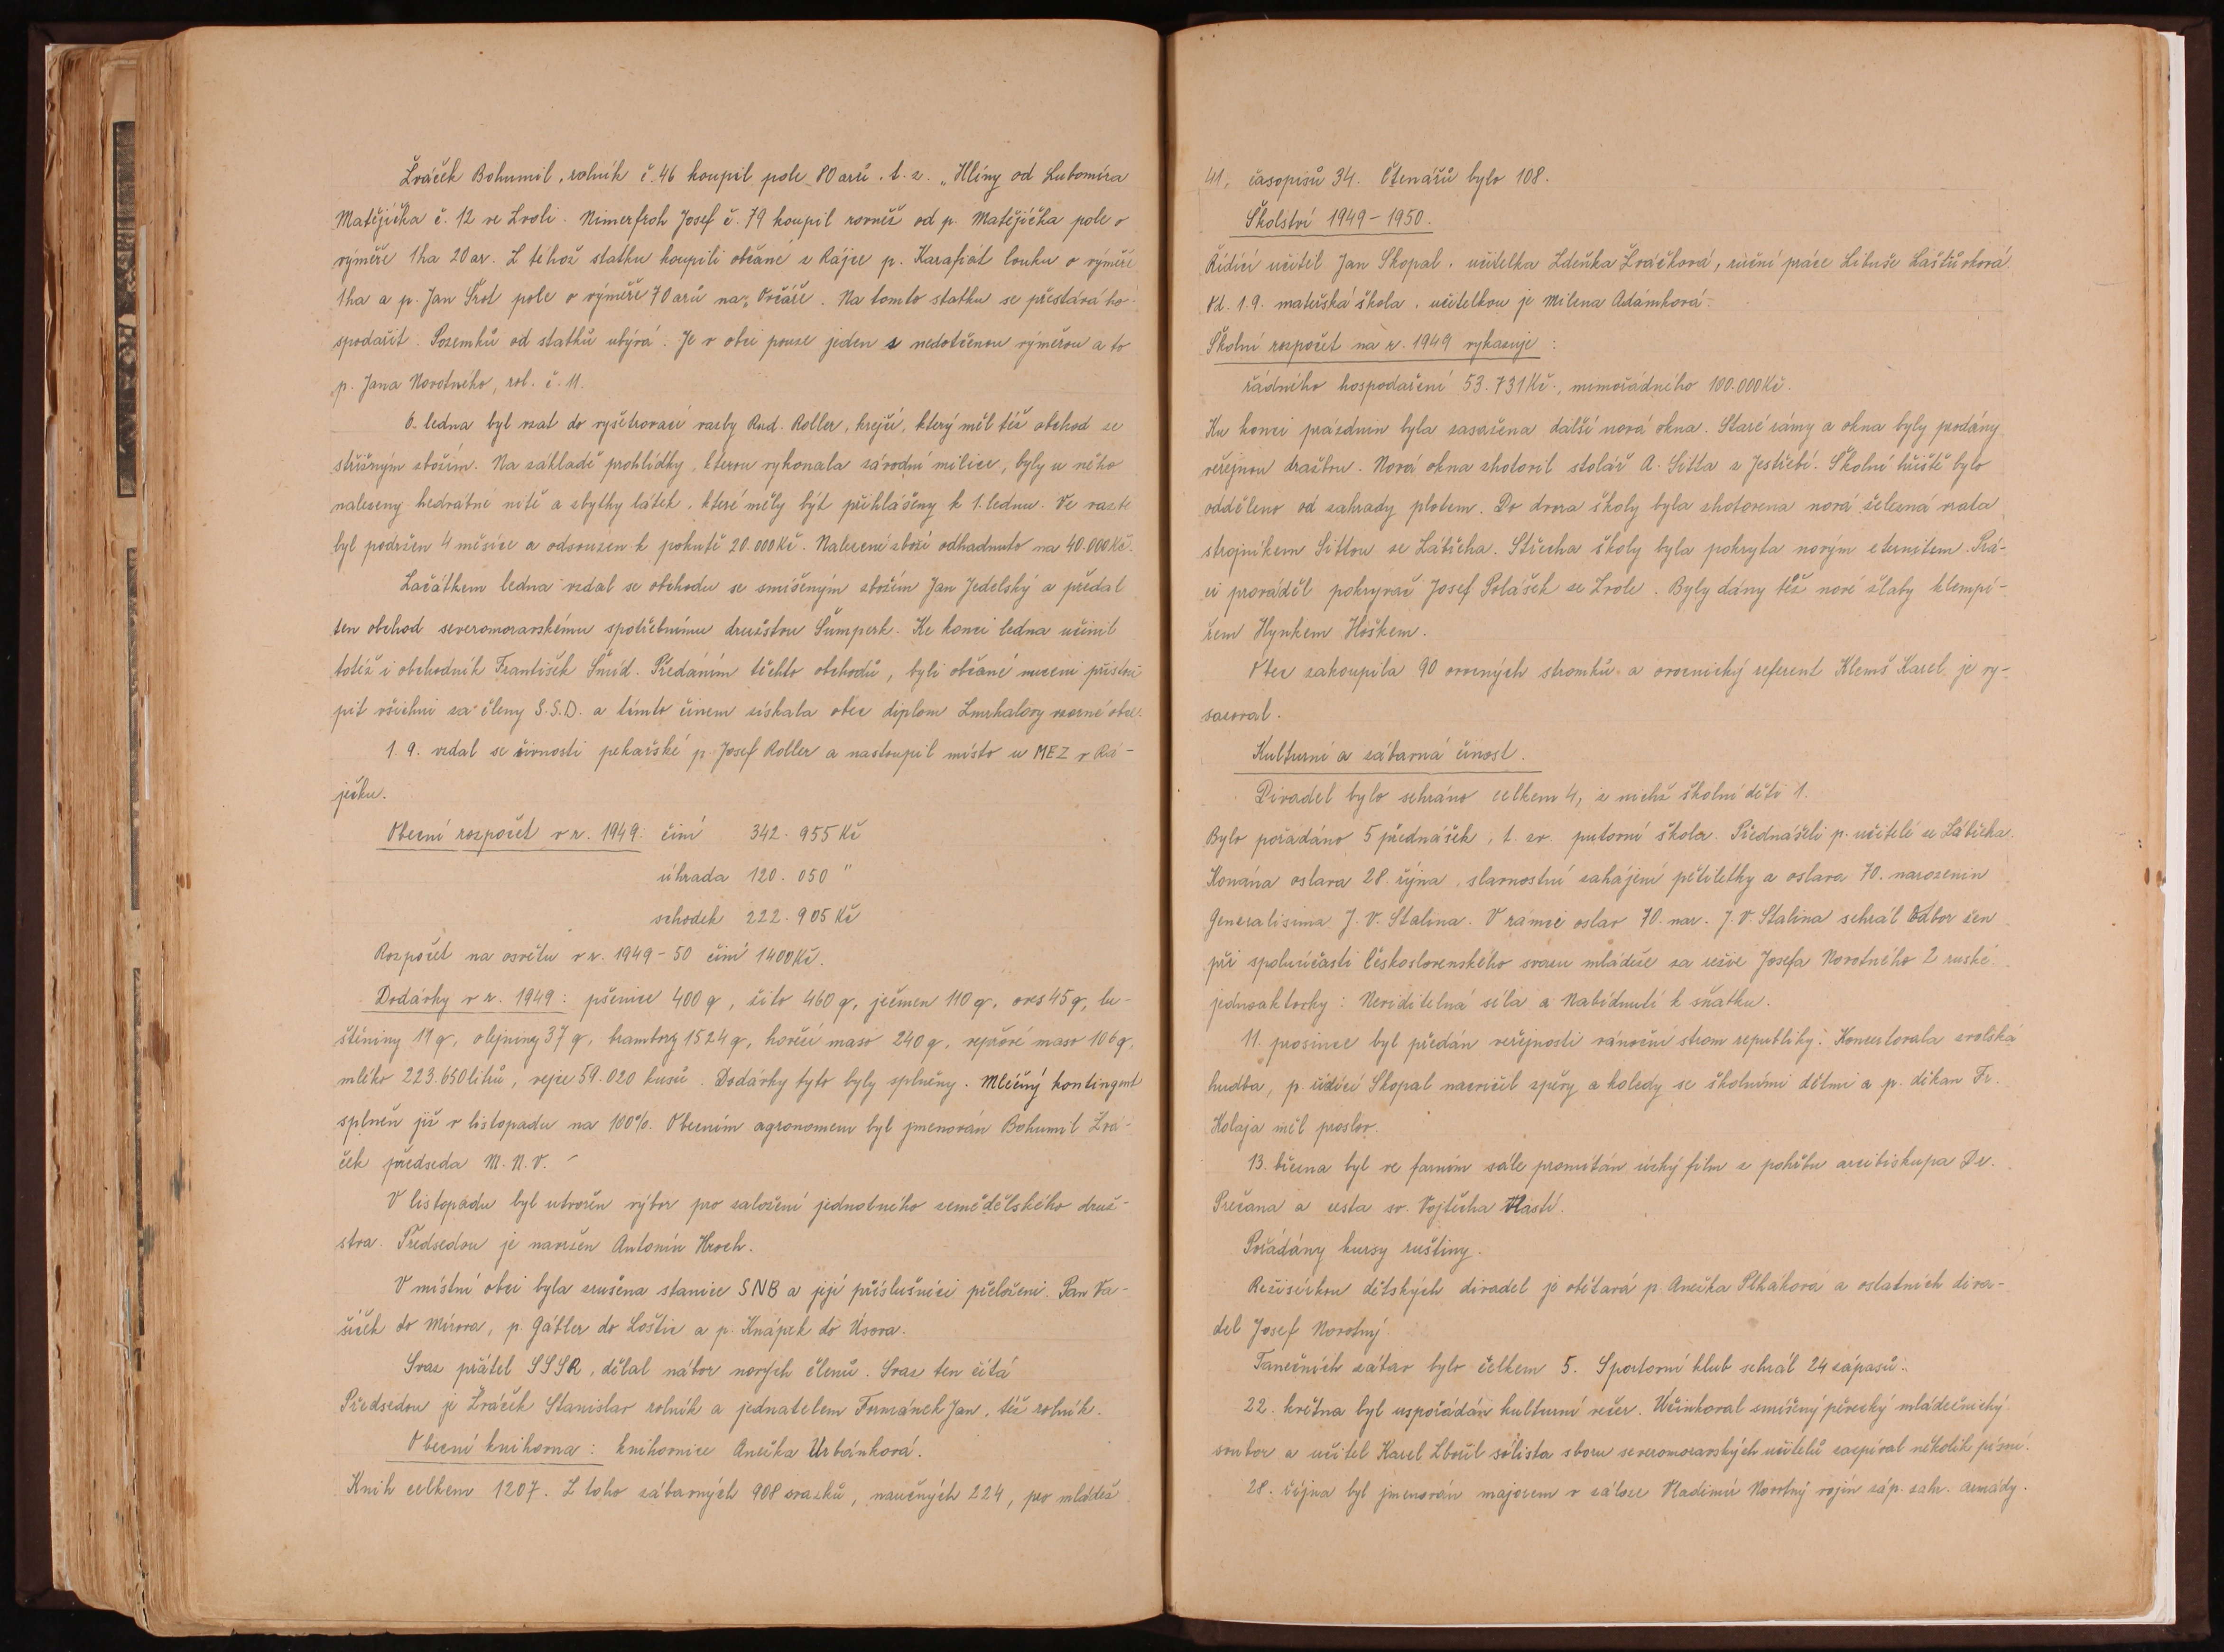 Žváček Bohumil, rolník č. 46 koupil pole 80 arů. t. z. „Hlíny od Lubomíra
Matějíčka č. 12 ve Zvoli. Nimerfroh Josef č. 79 koupil rovněž od p. Matějíčka pole o
výměře 1 ha 20 ar. Z téhož statku koupili občané z Rájce p. Karafiát louku o výměře
1 ha a p. Jan Šrot pole o výměře 70 arů na „Ovčáře. Na tomto statku se přestává ho-
spodařit. Pozemků od statků ubývá. Je v obci pouze jeden s nedotčenou výměrou a to
p. Jana Novotného, rol. č. 11.
6. ledna byl vzat do vyšetřovací vazby Rud. Roller, krejčí, který měl též obchod se
střižným zbožím. Na základě prohlídky, kterou vykonala závodní milice, byly u něho
nalezeny hedvábné nitě a zbytky látek, které měly být přihlášeny k 1. lednu. Ve vazbě
byl podržen 4 měsíce a odsouzen k pokutě 20.000 Kč. Nalezené zboží odhadnuto na 40.000 Kč.
Začátkem ledna vzdal se obchodu se smíšeným zbožím Jan Jedelský a předal
ten obchod severomoravskému spotřebnímu družstvu Šumperk. Ke konci ledna učinil
totéž i obchodník František Šmíd. Předáním těchto obchodů, byli občané nuceni přistou-
pit všichni za členy S.S.D. a tímto činem získala obec diplom Zmrhalovy vzorné obce.
1. 9. vzdal se živnosti pekařské p. Josef Roller a nastoupil místo u MEZ v Rá-
ječku.
Obecní rozpočet v r. 1949: činí 342.955 Kč
úhrada 120.050 "
schodek 222.905 Kč
Rozpočet na osvětu v r. 1949-50 činí 1400 Kč.
Dodávky v r. 1949: pšenice 400 q, žito 460 q, ječmen 110 q, oves 45 q, lu-
štěniny 11 q, olejniny 37 q, brambory 1524 q, hovězí maso 240 q, vepřové maso 106 q,
mléko 223.650 litrů, vejce 59.020 kusů. Dodávky tyto byly splněny. Mléčný kontingent
splněn již v listopadu na 100%. Obecním agronomem byl jmenován Bohumil Žvá-
ček předseda M.N.V.
V listopadu byl utvořen výbor pro založení jednotného zemědělského druž-
stva. Předsedou je navržen Antonín Hroch.
V místní obci byla zrušena stanice SNB a její příslušníci přeloženi. Pan Va-
šíček do Mírova, p. Gábler do Loštic a p. Knápek do Úsova.
Svaz přátel SSSR, dělal nábor nových členů. Svaz ten čítá
Předsedou je Žváček Stanislav rolník a jednatelem Formánek Jan, též rolník.
Obecní knihovna: knihovnice Anežka Urbánková.
Knih celkem 1207. Z toho zábavných 908 svazků, naučných 224, pro mládež
41, časopisů 34. Čtenářů bylo 108.
Školství 1949-1950.
Řídící učitel Jan Skopal, učitelka Zdeňka Žváčková, ruční práce Libuše Laštůvková.
Od. 1.9. mateřská škola, učitelkou je Milena Adámková.
Školní rozpočet na r. 1949 vykazuje:
řádného hospodaření 53.731 Kč, mimořádného 100.000 Kč.
Ku konci prázdnin byla zasazena další nová okna. Staré rámy a okna byly prodány
veřejnou dražbou. Nová okna zhotovil stolář A. Sitta z Jestřebí. Školní hřiště bylo
odděleno od zahrady plotem. Do dvora školy byla zhotovena nová železná vrata
strojníkem Sittou ze Zábřeha. Střecha školy byla pokryta novým eternitem. Prá-
ci prováděl pokryvač Josef Polášek ze Zvole. Byly dány též nové žlaby klempí-
řem Hynkem Hoškem.
Obec zakoupila 90 ovocných stromků a ovocnický referent Klemš Karel je vy-
sazoval.
Kulturní a zábavná činost.
Divadel bylo sehráno celkem 4, z nichž školní děti 1.
Bylo pořádáno 5 přednášek, t. zv. putovní škola. Přednášeli p. učitelé ze Zábřeha.
Konána oslava 28. října, slavnostní zahájení pětiletky a oslava 70. narozenin
Generalisima J. V. Stalina. V rámci oslav 70. nar. J. V. Stalina sehrál Odbor žen
při spoluúčasti Československého svazu mládeže za režie Josefa Novotného 2 ruské
jednoaktovky: Neviditelná síla a Nabídnutí k sňatku.
11. prosince byl předán veřejnosti vánoční strom republiky. Koncertovala zvolská
hudba, p. řídící Skopal nacvičil zpěvy a koledy se školními dětmi a p. děkan Fr.
Kolaja měl proslov.
13. března byl ve farním sále promítán úzký film z pohřbu arcibiskupa Dr.
Prečana a cesta sv. Vojtěcha Vlastí.
Pořádány kursy ruštiny.
Režisérkou dětských divadel je obětavá p. Anežka Plháková a ostatních diva-
del Josef Novotný.
Tanečních zábav bylo celkem 5. Sportovní klub sehrál 24 zápasů.
22. května byl uspořádán kulturní večer. Účinkoval smíšený pěvecký mládežnický
soubor a učitel Karel Zbořil sólista sboru severomoravských učitelů zazpíval několik písní.
28. října byl jmenován majorem v záloze Vladimír Novotný vojín záp. zahr. armády.